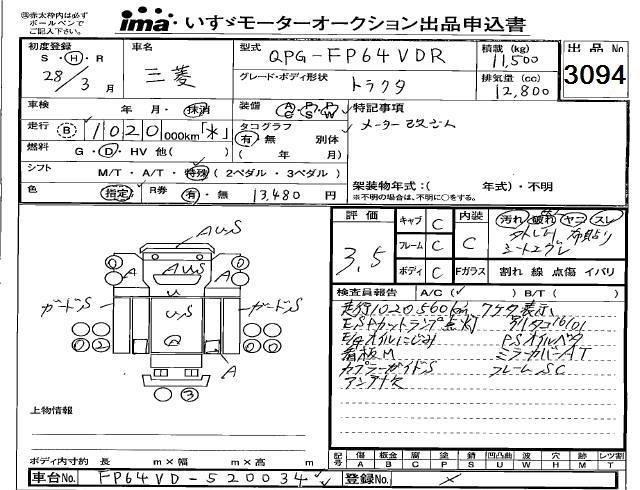 ㊟赤太枠内は必ず
ボールペンで
ご記入下さい。
ima いすゞモーターオークション出品申込書
初度登録
S・H・R
28/3月
車名
三菱
型式
QPG-FP64VDR
積載(kg)
11,500
グレード・ボディ形状
トラクタ
排気量(cc)
12,800
出品No
3094
車検 年・月・抹消
装備 AC PS PW
特記事項
メーター改ざん
走行 B 1020 000km「*」
タコグラフ
有・無 別体
( 年 月)
燃料 G・D・HV 他( )
シフト M/T・A/T・特殊(2ペダル・3ペダル)
色 指定
R券 有・無 13,480 円
架装物年式:( 年式)・不明
※不明の場合は、不明に○をする。
評価
3.5
キャブ C
フレーム C
ボディ C
内装
C
Fガラス
汚れ 破れ ヤニ スレ
割れ 線 点傷 イバリ
検査員報告 A/C(✓) B/T( )
走行1020560km
看板M
カプラーガイドS
フレームSC
AUS
AUS
U
ガードS
ガードS
A
A
A
0
0
0
2
3
上物情報
ボディ内寸約 長 m×幅 m×高 m
記号 傷A 板金B 腐C 塗P 錆S 凹凸曲U 波W 穴H 跡M レツ割T
車台No. FP64VD-520034
登録No.